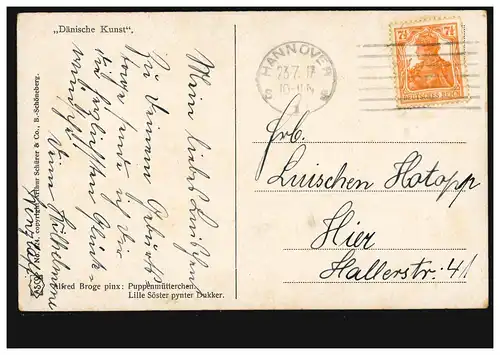 „Dänische Kunst“.
Mein liebes Luischen!
Zu Deinem Geburts-
tage sende ich Dir
die herzlichsten Glück-
wünsche
Deine
HANNOVER
23.7.17
7½ 7½
DEUTSCHES REICH
Luischen Hotopp
Hier
Hallerstr. 41
Alfred Broge pinx: Puppenmütterchen.
Lille Söster pynter Dukker.
copyright Arthur Schürer & Co., B.-Schöneberg.